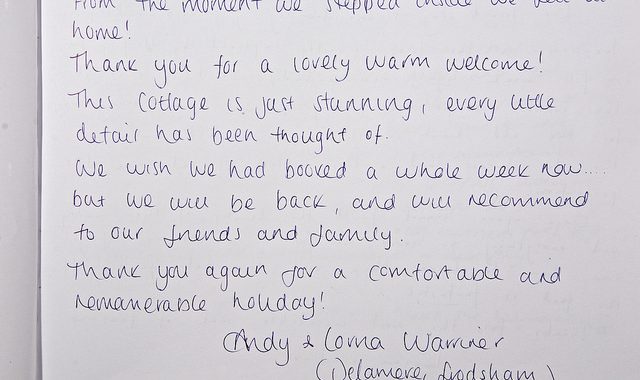 From the moment we stepped inside we felt at
home!
Thank you for a lovely warm welcome!
This Cottage is just stunning, every little
detail has been thought of.
We wish we had booked a whole week now....
but we will be back, and will recommend
to our friends and family.
Thank you again for a comfortable and
remamerable holiday!
Andy & Lorna Warriner
(Delamere, Frodsham)